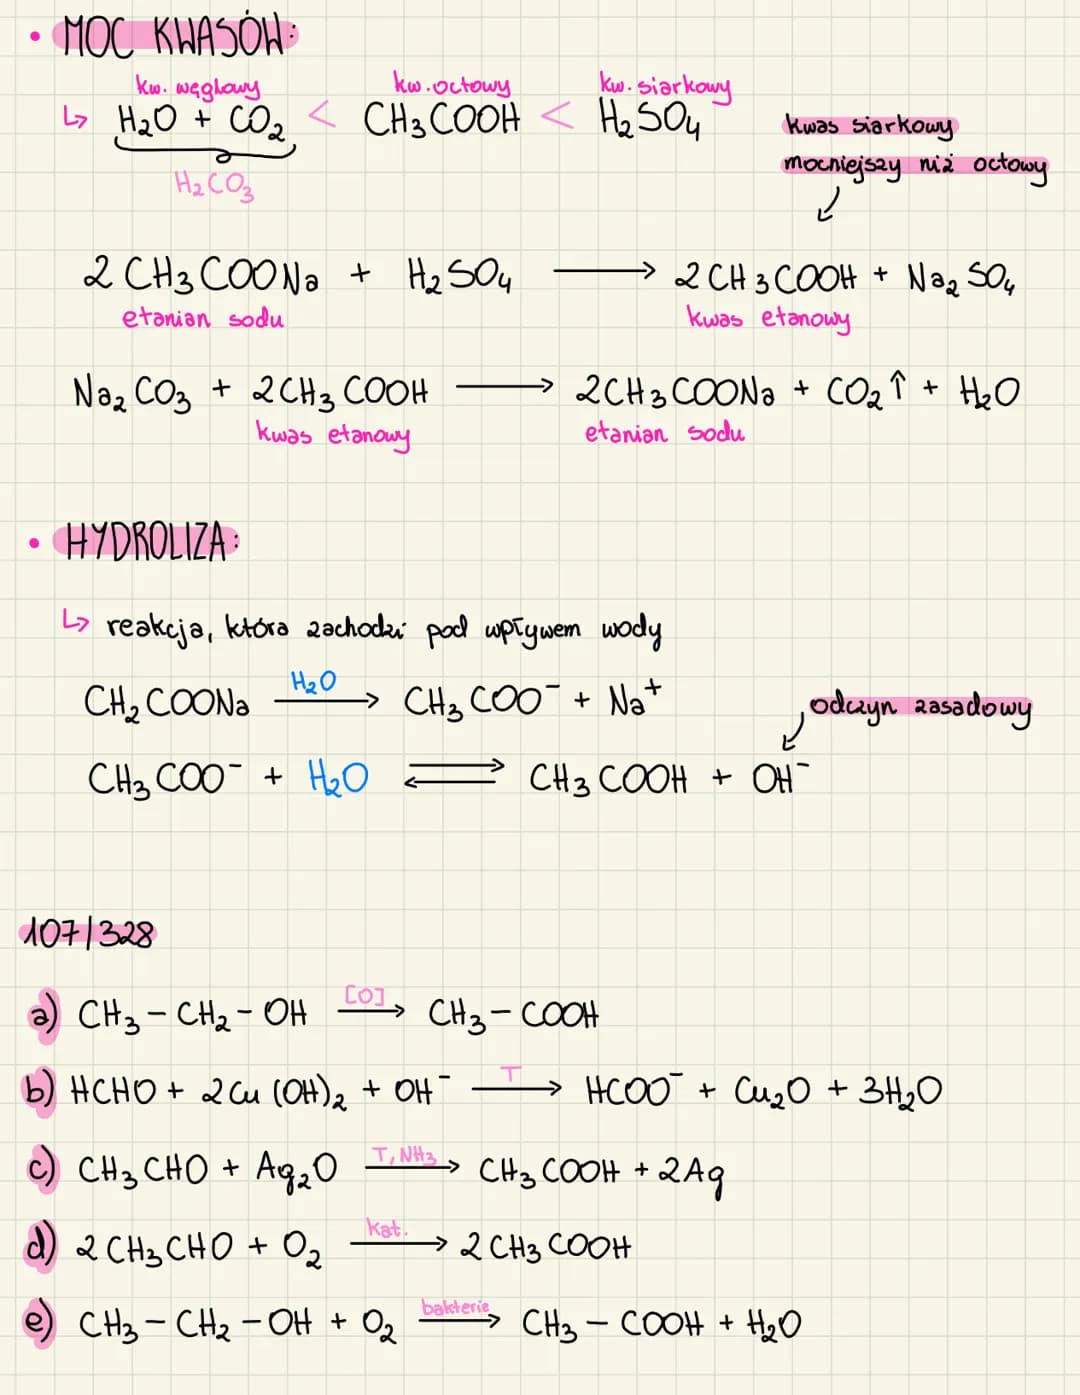 • MOC KWASÓW:
kw. węglowy kw. octowy kw. siarkowy
↳ H₂O + CO₂ < CH₃COOH < H₂SO₄
H₂CO₃
kwas siarkowy
mocniejszy niż octowy
2 CH₃COONa + H₂SO₄ → 2 CH₃COOH + Na₂SO₄
etanian sodu kwas etanowy
Na₂CO₃ + 2CH₃COOH → 2CH₃COONa + CO₂↑ + H₂O
kwas etanowy etanian sodu
• HYDROLIZA:
↳ reakcja, która zachodzi pod wpływem wody
CH₂COONa H₂O → CH₃COO⁻ + Na⁺
odczyn zasadowy
CH₃COO⁻ + H₂O ⇄ CH₃COOH + OH⁻
107/328
a) CH₃-CH₂-OH [O] → CH₃-COOH
b) HCHO + 2Cu(OH)₂ + OH⁻ T → HCOO⁻ + Cu₂O + 3H₂O
c) CH₃CHO + Ag₂O T, NH₃ → CH₃COOH + 2Ag
d) 2CH₃CHO + O₂ kat. → 2CH₃COOH
e) CH₃-CH₂-OH + O₂ bakterie → CH₃-COOH + H₂O